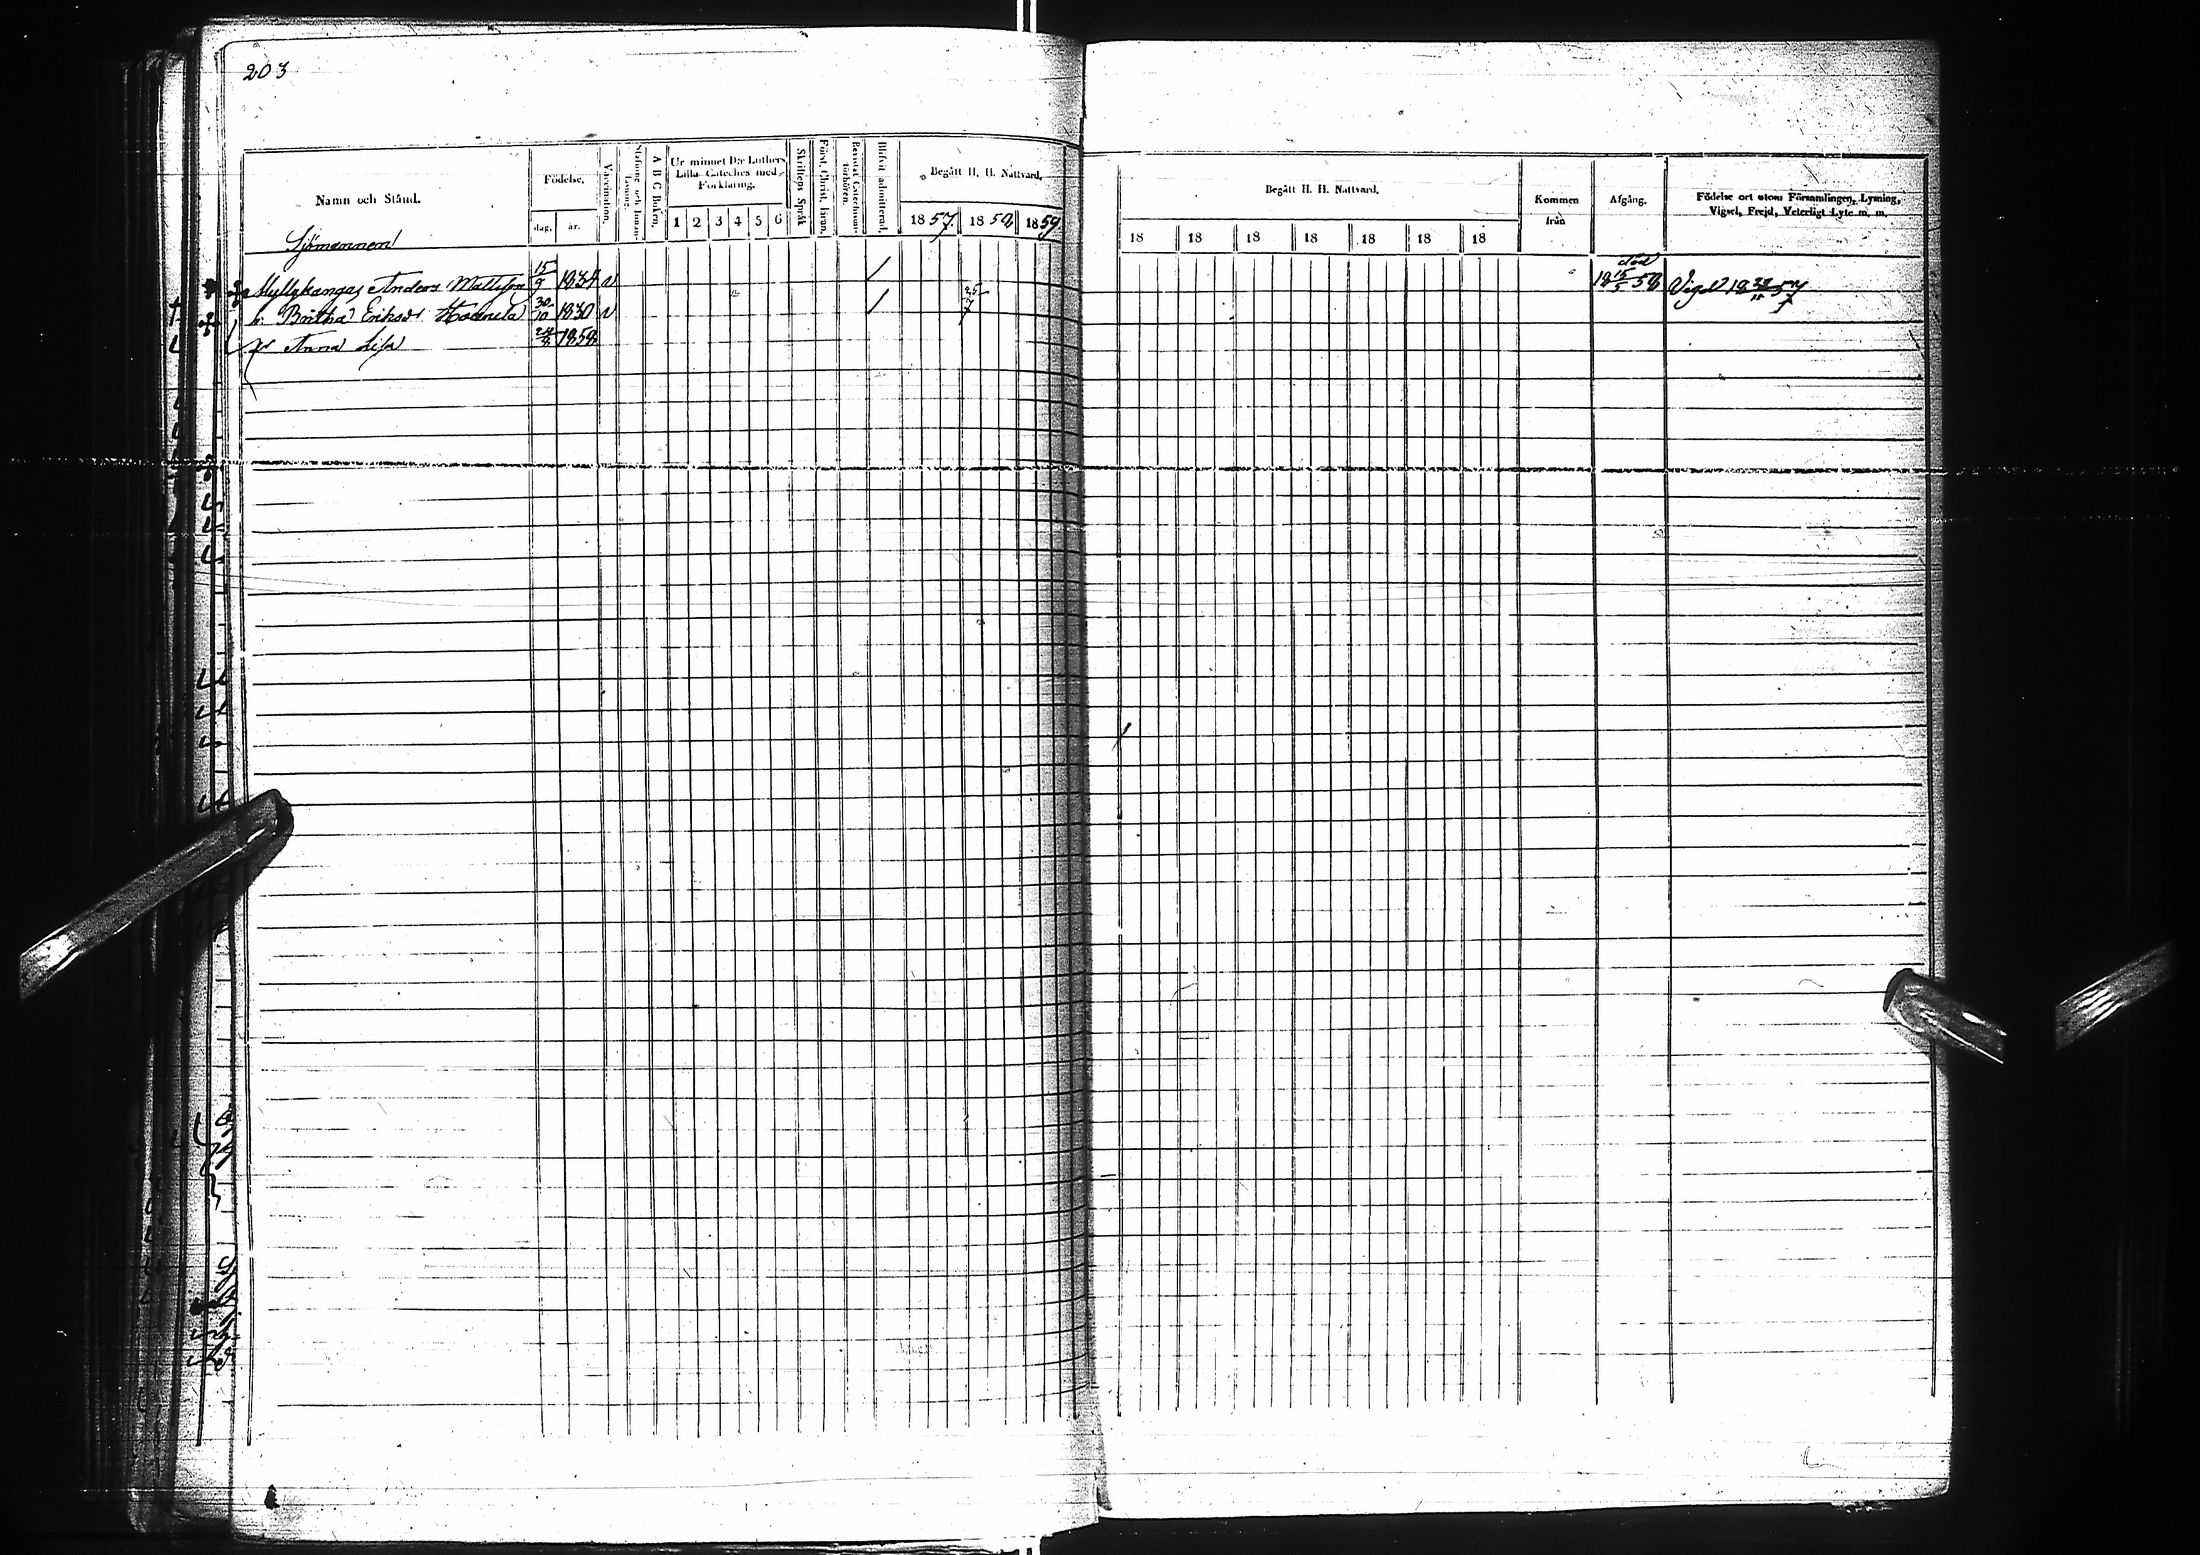 203
Namn och Stånd.
Födelse.
dag. år.
Vaccination.
Stafning och Innanläsning.
A B C Boken.
Ur minnet D:r Luthers Lilla Cateches med Förklaring.
1 2 3 4 5 6
Skriftens Språk
Först. Christ. läran.
Bevistat Catechismiförhören.
Blifvit admitterad.
Begått H. H. Nattvard.
1857. 1858 1859
Begått H. H. Nattvard.
18 18 18 18 18 18 18
Kommen från
Afgång.
Födelse ort utom Församlingen, Lysning, Vigsel, Frejd, Veterligt Lyte m. m.
Sjömannen
Myllykangas Anders Mattsson 15/9 1834 v / död 18 15/5 58
h. Britha Eriksdr 30/10 1830 v / 25/7
Anna Lisa 1858